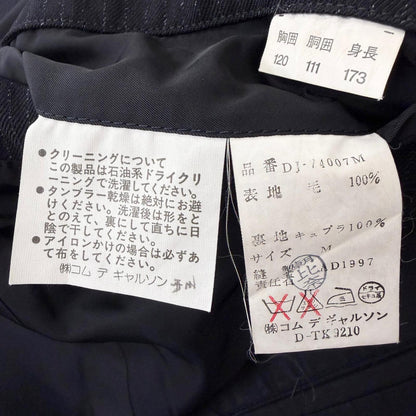 胸囲 胴囲 身長
120 111 173
●クリーニングについて
この製品は石油系ドライクリ
ーニングで洗濯してください。
●タンブラー乾燥は絶対にお避
けください。洗濯後は形をと
とのえて、裏にして直ちに日
陰で干してください。
●アイロンかけの場合は必ずあ
て布をしてください。
㈱コム デ ギャルソン
品番 DJ-14007M
表地 毛 100%
裏地 キュプラ100%
サイズ M
AD1997
ドライ
セキユ系
㈱コム デ ギャルソン
D-TK9210